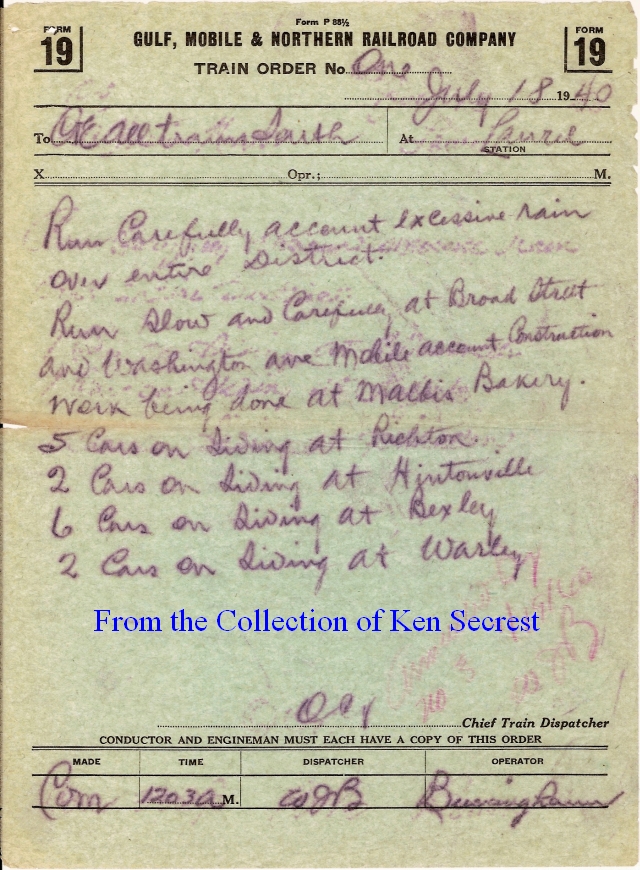 Form P 88½
FORM 19
GULF, MOBILE & NORTHERN RAILROAD COMPANY
FORM 19
TRAIN ORDER No. One
July 18 1940
To C&E All trains South At Laurel
STATION
X Opr.; M.
Run Carefully account excessive rain
over entire District.
Run slow and Carefully at Broad Street
and Washington ave Mobile account Construction
work being done at Malbis Bakery.
5 Cars on Siding at Richton
2 Cars on Siding at Hintonville
6 Cars on Siding at Bexley
2 Cars on Siding at Warley
From the Collection of Ken Secrest
Chief Train Dispatcher
CONDUCTOR AND ENGINEMAN MUST EACH HAVE A COPY OF THIS ORDER
MADE TIME DISPATCHER OPERATOR
Com 1203A M. WJB